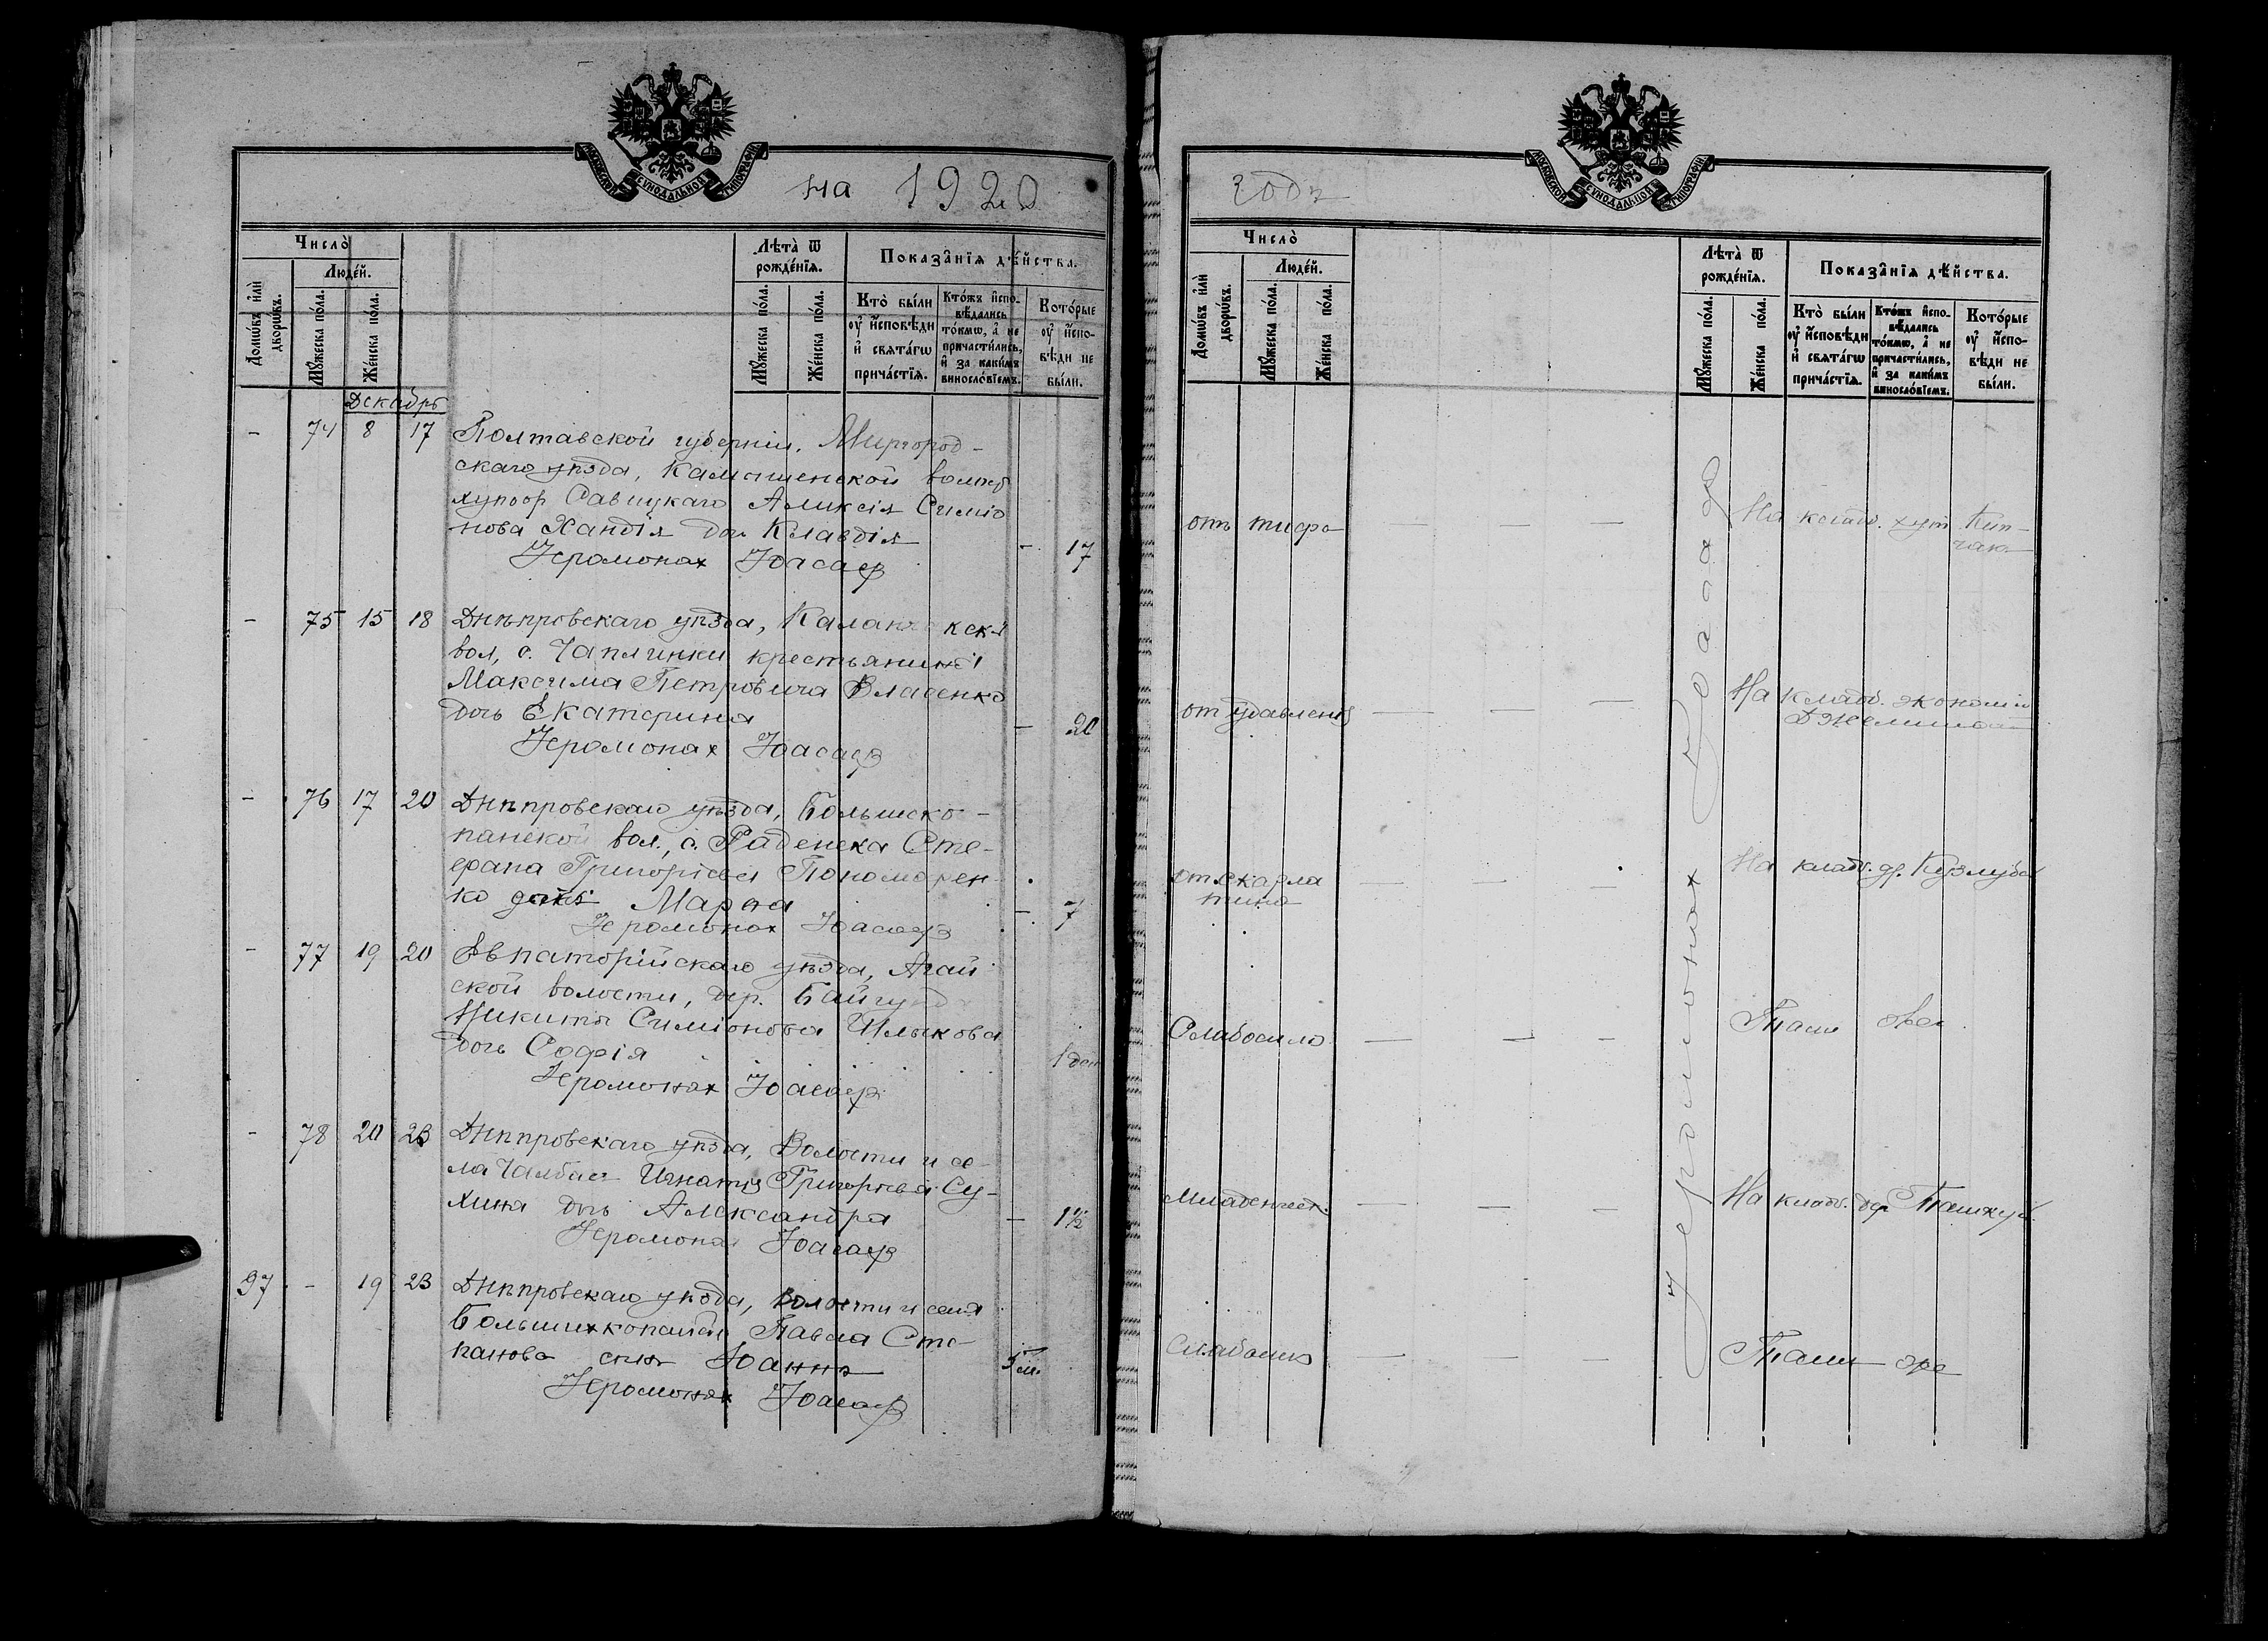 МОСКОВСКОЙ СѴНОДАЛЬНОЙ ТИПОГРАФІИ
на 1920
Число̀
Домѡ́въ и҆лѝ дворѡ́въ.
Люде́й.
Мꙋ́жеска по́ла.
Же́нска по́ла.
Лѣта̀ ѿ рожде́нїѧ.
Мꙋ́жеска по́ла.
Же́нска по́ла.
Показа̑нїѧ дѣ́йства.
Кто̀ бы́ли ᲂу҆ и҆сповѣди и҆ свѧта́гѡ прича́стїѧ.
Кто́жъ и҆сповѣдались то́кмѡ, а҆ не причасти́лись, и҆ за каки́мъ виносло́вїемъ.
Кото́рые ᲂу҆ и҆сповѣди не бы́ли.
Декабрь
- 74 8 17 Полтавской губерніи, Миргород-
скаго уѣзда, Камышенской
Савицкаго Аликсія Симіо
нова дочь Клавдія
Іеромонах Іоасаф - 17
- 75 15 18 Днѣпровскаго уѣзда,
вол, с. Чаплинки крестьянина
Максима Петровича Власенко
дочь Екатерина - 20
Іеромонах Іоасаф
- 76 17 20 Днѣпровскаго уѣзда, Большеко-
панской вол., с. Раденска Сте-
фана Григоріева Пономарен-
ко дочь - 7
Іеромонах Іоасаф
- 77 19 20 Евпаторійскаго уѣзда, Агай
ской волости, дер.
Никиты Симіонова
дочь Софія 1 ден
Іеромонах Іоасаф
- 78 20 23 Днѣпровскаго уѣзда, Волости и се-
ла Чалбас Игнатія Григорьева Су-
хина дочь Александра - 1½
Іеромонах Іоасаф
97 - 19 23 Днѣпровскаго уѣзда, волости и села
Павла Сте-
панова сынъ Іоаннъ 5 м.
Іеромонах Іоасаф
МОСКОВСКОЙ СѴНОДАЛЬНОЙ ТИПОГРАФІИ
годъ
Число̀
Домѡ́въ и҆лѝ дворѡ́въ.
Люде́й.
Мꙋ́жеска по́ла.
Же́нска по́ла.
Лѣта̀ ѿ рожде́нїѧ.
Мꙋ́жеска по́ла.
Же́нска по́ла.
Показа̑нїѧ дѣ́йства.
Кто̀ бы́ли ᲂу҆ и҆сповѣди и҆ свѧта́гѡ прича́стїѧ.
Кто́жъ и҆сповѣдались то́кмѡ, а҆ не причасти́лись, и҆ за каки́мъ виносло́вїемъ.
Кото́рые ᲂу҆ и҆сповѣди не бы́ли.
отъ тифа — — — На кладб. хут. Кип-
чак
от удавленія — — — На кладб. экономіи
от скарла — — — На кладб. др.
тина
Слабосило — — — Тамъ
Младенчест. — — — На кладб. дер
— — — Тамъ
Іеромонах Іоасаф